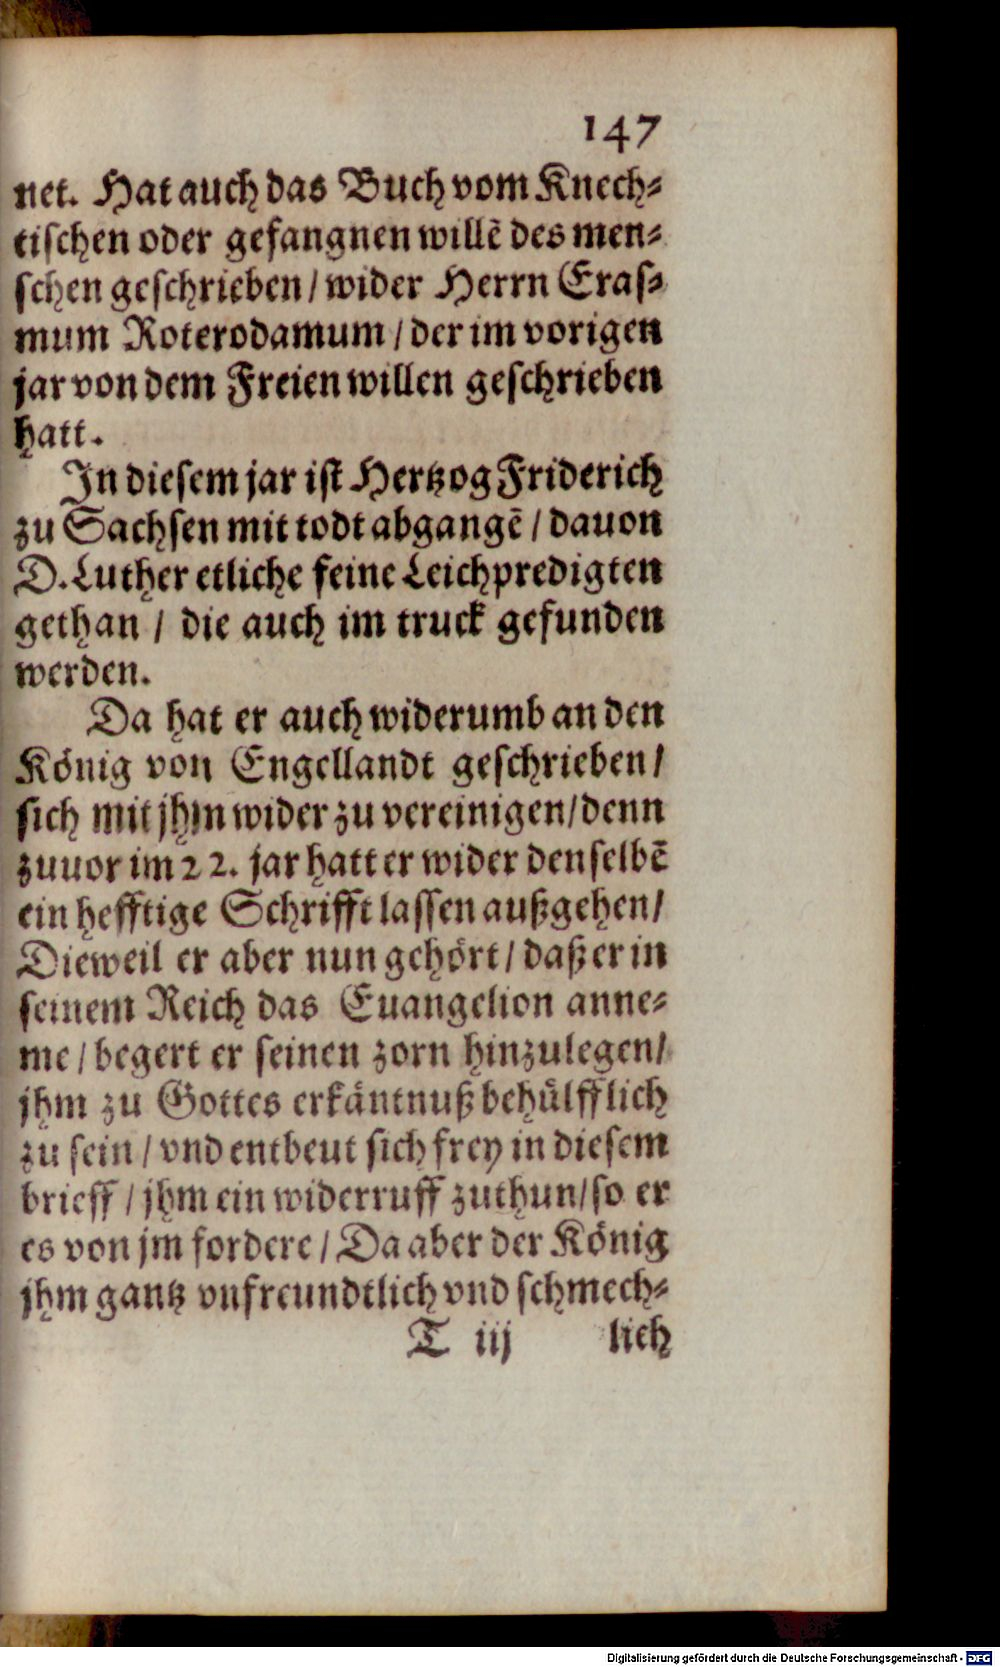 147
net. Hat auch das Buch vom Knech-
tischen oder gefangnen willē des men-
schen geschrieben / wider Herrn Eras-
mum Roterodamum / der im vorigen
jar von dem Freien willen geschrieben
hatt.
In diesem jar ist Hertzog Friderich
zu Sachsen mit todt abgangē / dauon
D. Luther etliche feine Leichpredigten
gethan / die auch im truck gefunden
werden.
Da hat er auch widerumb an den
König von Engellandt geschrieben /
sich mit jhm wider zu vereinigen / denn
zuuor im 22. jar hatt er wider denselbē
ein hefftige Schrifft lassen außgehen /
Dieweil er aber nun gehört / daß er in
seinem Reich das Euangelion anne-
me / begert er seinen zorn hinzulegen /
jhm zu Gottes erkäntnuß behülfflich
zu sein / vnd entbeut sich frey in diesem
brieff / jhm ein widerruff zuthun / so er
es von jm fordere / Da aber der König
jhm gantz vnfreundtlich vnd schmech-
T iij lich
Digitalisierung gefördert durch die Deutsche Forschungsgemeinschaft - DFG